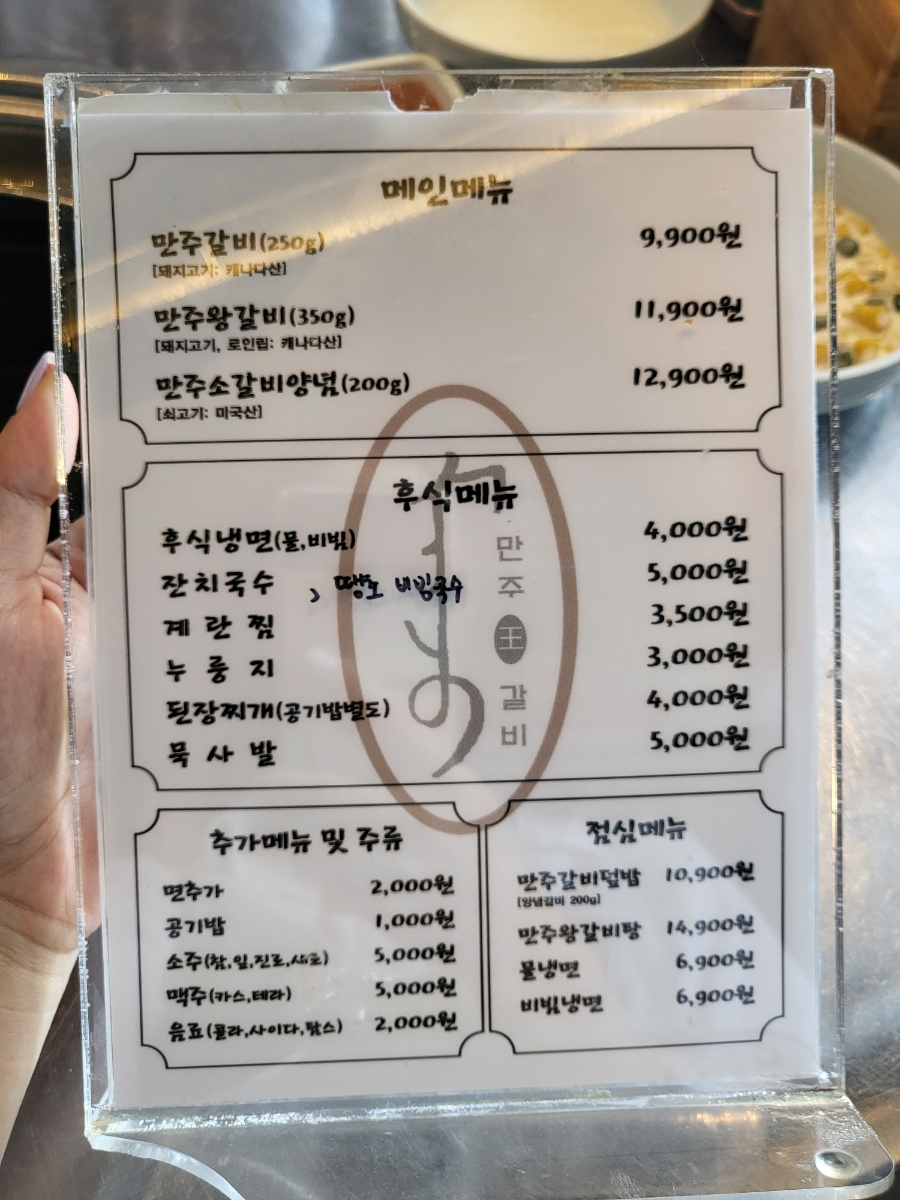 메인메뉴
만주갈비(250g) 9,900원
[돼지고기: 캐나다산]
만주왕갈비(350g) 11,900원
[돼지고기, 로인립: 캐나다산]
만주소갈비양념(200g) 12,900원
[쇠고기: 미국산]
후식메뉴
후식냉면(물,비빔) 4,000원
잔치국수 , 땡초 비빔국수 5,000원
계란찜 3,500원
누룽지 3,000원
된장찌개(공기밥별도) 4,000원
묵사발 5,000원
만주王갈비
추가메뉴 및 주류
면추가 2,000원
공기밥 1,000원
소주(참,잎,진로,새로) 5,000원
맥주(카스,테라) 5,000원
음료(콜라,사이다,탐스) 2,000원
점심메뉴
만주갈비덮밥 10,900원
[양념갈비 200g]
만주왕갈비탕 14,900원
물냉면 6,900원
비빔냉면 6,900원